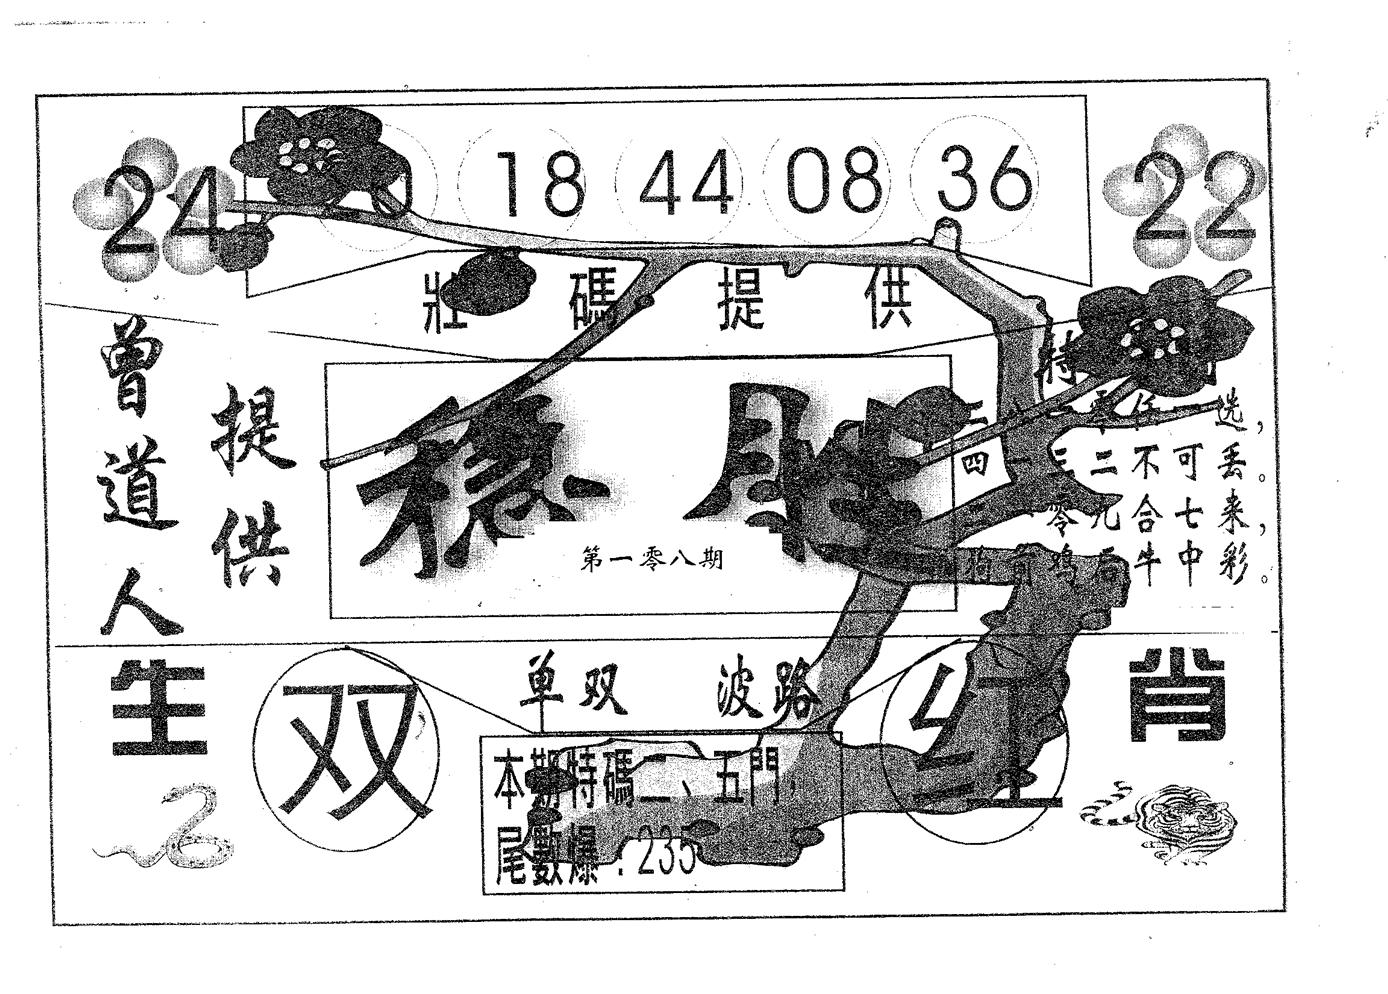 24
18 44 08 36
22
壯碼提供
曾道人
提供
穩勝
第一零八期
特
選，
四一三二不可丢。
零九合七来，
狗 鸡 牛中彩。
生
肖
双
单双 波路
红
本期特碼二、五門，
尾數爆：235